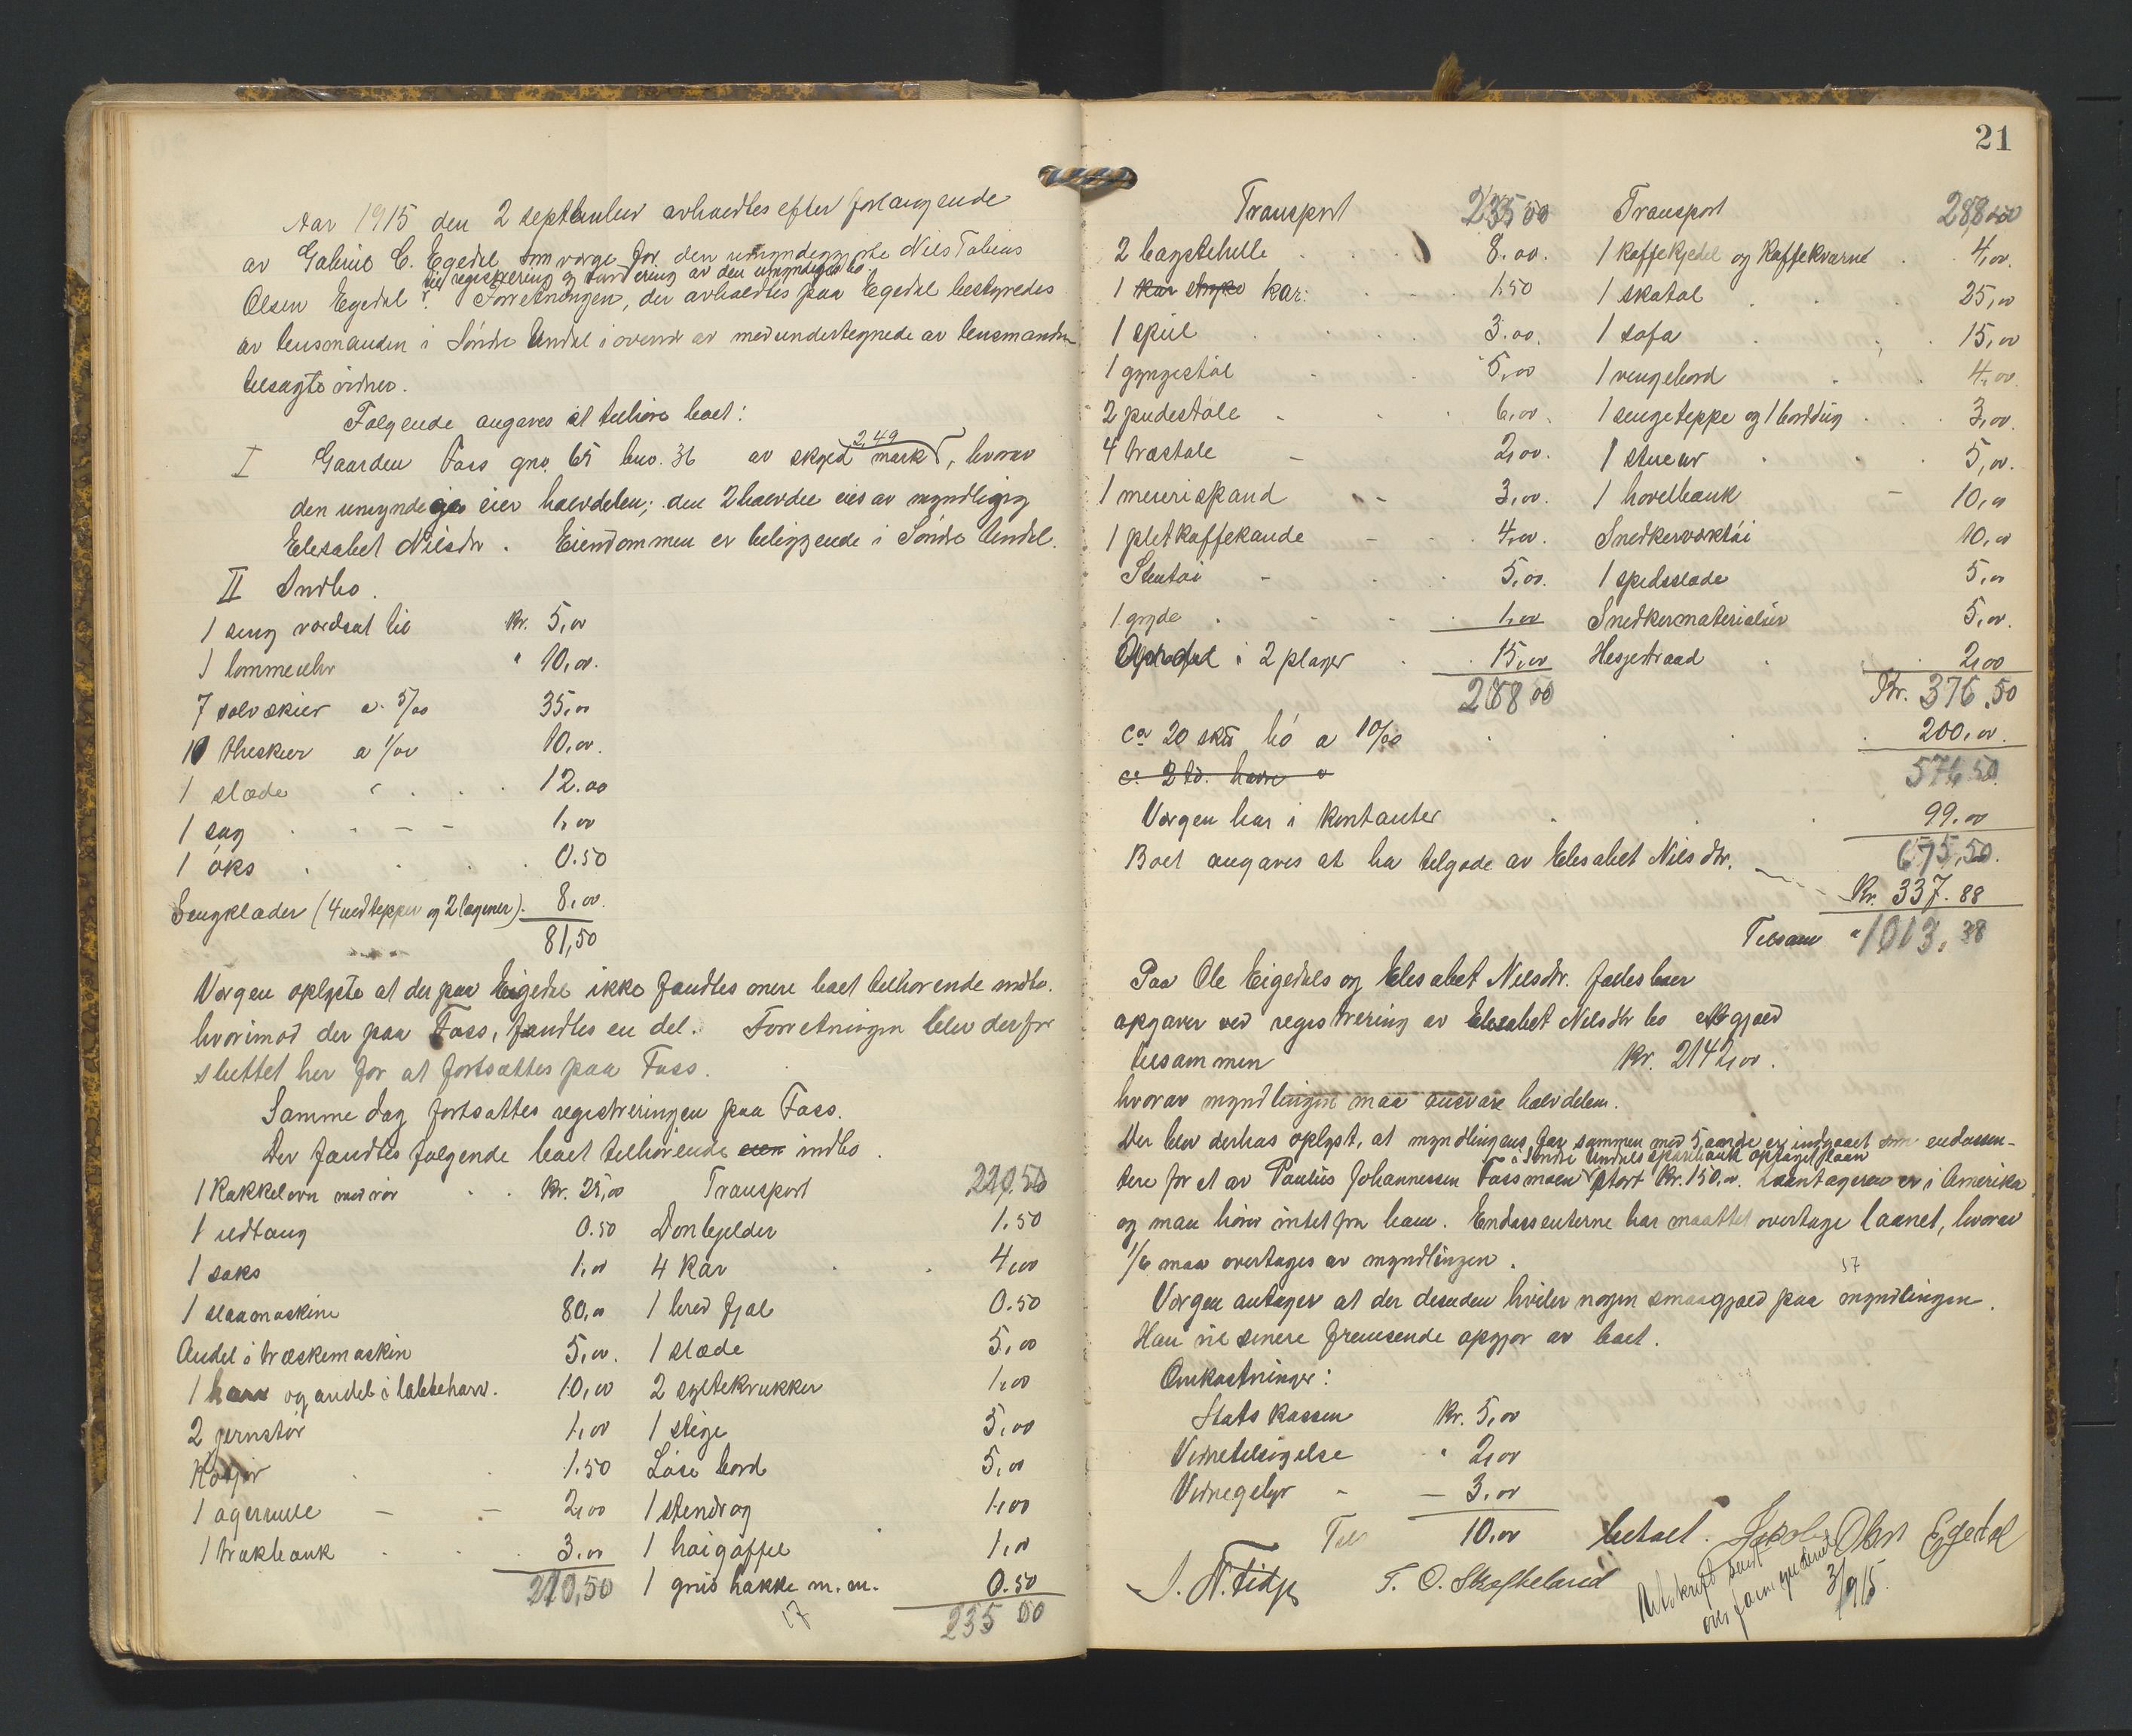 Aar 1915 den 2 september avholdtes efter forlangende
av Gabriel C. Egedal som verge for den umyndiggjorte Nils Tobias
til registrering og vurdering av den umyndiges bo
Olsen Egedal. Forretningen, der avholdtes paa Egedal bestyredes
av lensmanden i Söndre Undal i overvær av medundertegnede av lensmanden
tilsagte vidner.
Følgende angaves at tilhöre boet:
I Gaarden Foss gno. 65 bno. 36 av skyld mark 2,49, hvorav
den umyndige eier halvdelen; den 2 halvdel eies av myndling
Elesabet Nilsdtr. Eiendommen er beliggende i Söndre Undal.
II Indbo.
1 seng vordsat til Kr. 5,00
1 lommeuhr " 10,00.
7 sølvskier a 5/00 35,00
10 theskier a 1/00 10,00.
1 slæde 12.00
1 sag 1,00
1 öks 0.50
Sengklæder (4 uldtepper og 2 lagener). 8,00.
81,50
Vergen oplyste at der paa Eigedal ikke fandtes mere boet tilhørende indbo.
hvorimod der paa Foss, fandtes en del. Forretningen blev derfor
sluttet her for at fortsættes paa Foss.
Samme dag fortsattes registreringen paa Foss.
Der fandtes følgende boet tilhörende indbo.
1 Kakkelovn med rör Kr. 25,00
1 ildtang 0.50
1 saks 1,00
1 slaamaskine 80,00
Andel i træskemaskin 5,00.
1 harv og andel i labbeharv. 10,00
2 jernstör 1,00
1.50
2,00
3,00
210,50
Transport 220.50
Donbjelder 1.50
4 Kar 4,00
1 bred fjæl 0.50
1 slæde 5,00
2 syltekrukker 1,00
1 stige
Löse bord 5,00
1 stendrag 1,00
1 høigaffel 1,00
1 grus hakke m.m. 0.50
17
235 00
21
Transport 235 00
2 bagstehelle 8.00.
1 kar stryko kar: 1.50
1 speil 3.00.
1 gyngestol 5,00
2 pudestole 6,00.
4 træstole 2,00.
1 meierispand 3,00.
1 pletkaffekande 4,00.
Stentöi 5,00.
1 gryde 1,00
i 2 plager 15,00
288 00
Transport 288 00
1 kaffekjedel og Kaffekværne 4,00.
1 skatol 25,00
1 sofa 15,00
1 vengebord 4,00.
1 sengeteppe og 1 borddug 3,00.
1 stueur 5,00.
1 hovelbænk 10,00
Snedkerværktöi 10,00
1 spidsslæde 5,00
Snedkermaterialier 5,00.
Hesjetraad 2,00
Kr. 376.50
ca 20 skd hö a 10/00 200,00.
576 50
ca 2 td. havre a
Vergen har i Kontanter 99.00
675,50.
Boet angaves at ha tilgode av Elesabet Nilsdtr. Kr. 337.88
Tilsam " 1013,38
Paa Ole Eigedals og Elesabet Nilsdtr. fællesbo er
opgaver ved registrering av Elesabet Nilsdtr bo gjæld
tilsammen Kr. 2142,00.
hvorav myndlingen maa ansvare halvdelen.
Der blev derhos oplyst, at myndlingens far sammen med 5 andre er indgaaet som endossen-
i Söndre Undals sparebank optaget laan
tere for et av Paulus Johannessen Fossmoen stort Kr. 150,00. Laantageren er i Amerika
og man hører intet fra ham. Endossenterne har maattet overtage laanet, hvorav
1/6 maa overtages av myndlingen.
17
Vergen antager at der desuden hviler nogen smaagjæld paa myndlingen.
Han vil senere fremsende opgjør av boet.
Omkostninger:
Statskassen Kr. 5,00
Vidnetilsigelse " 2,00
Vidnegebyr - 3,00
Til 10,00 betalt.
Jakob Olsen Egedal
T. O. Skofteland
Utskrift sendt
3/9 15.